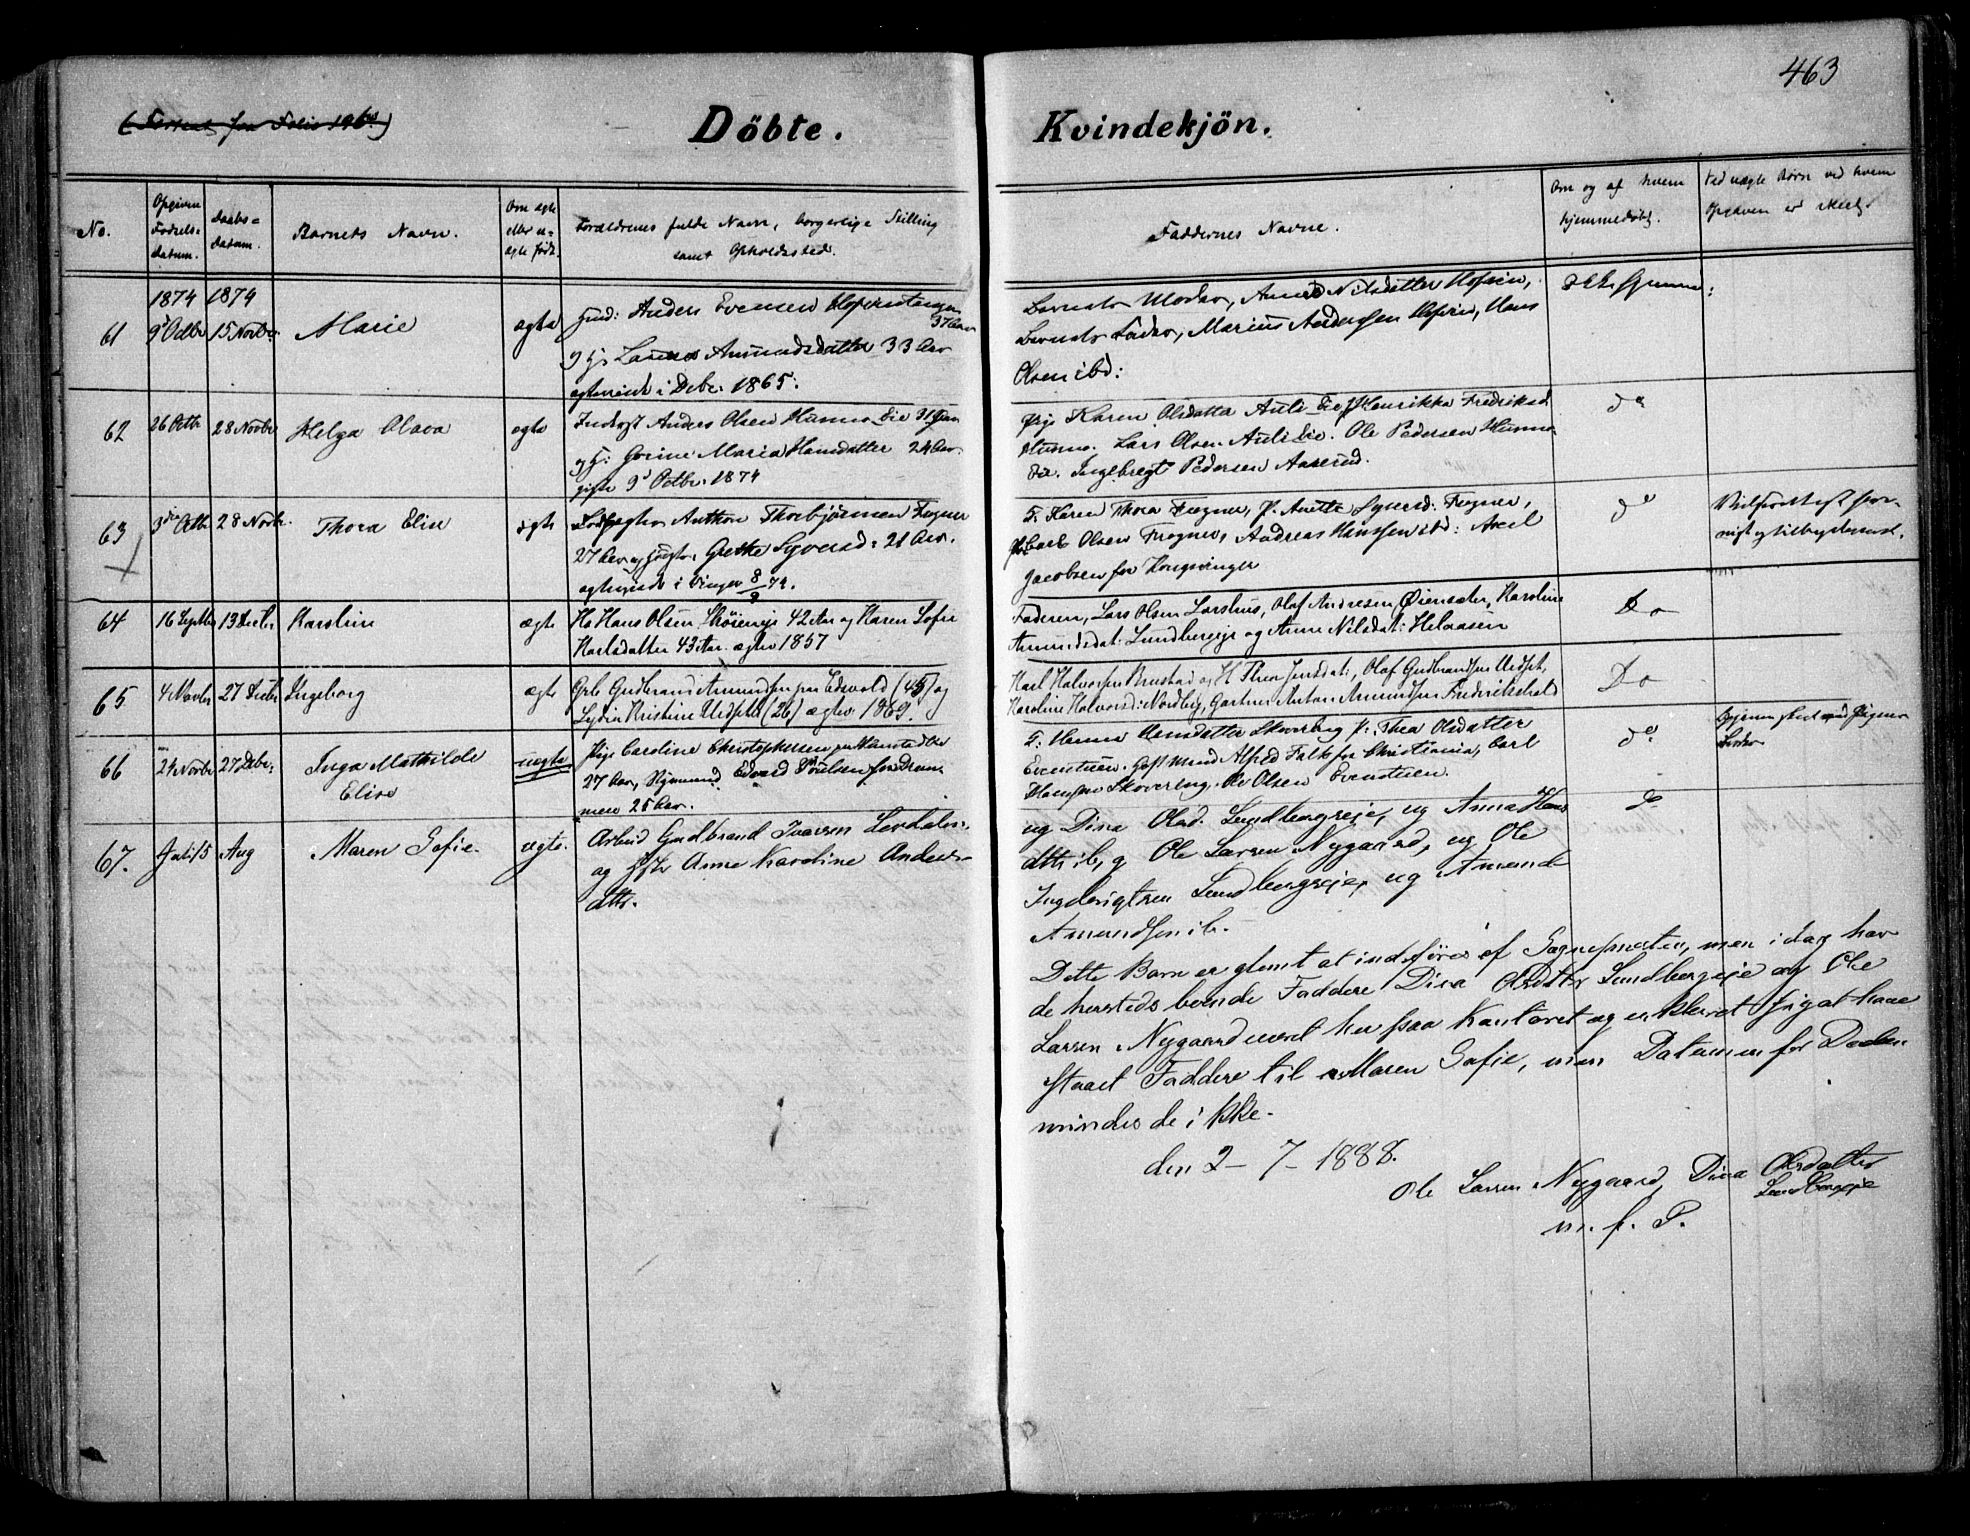 463
Döbte. Kvindekjön.
No.
Opgiven Fødsels- datum.
Daabs- datum.
Barnets Navn.
Om ægte eller u- ægte født.
Forældrenes fulde Navn, borgerlige Stilling samt Opholdssted.
Faddernes Navne.
Om og af hvem hjemmedøbt.
Ved uægte Børn ved hvem Opgaven er skeet.
61
1874 1874
9d Octbr 15 Novbr
Marie
ægte
Gmd: Anders Evensen
37 Aar
og Hst. Amundsdatter 33 Aar
ægteviede i Decbr. 1865.
Barnets Moder, Anne Nilsdatter Hofvin,
Barnets Fader, Marius Andersen Hofvin, Hans
Olsen ibd:
Ikke hjemme:
62
26 Octbr 28 Novbr
Helga Olava
ægte
Inderst Anders Olsen Hunnes Eie 31 Aar
og H: Gorine Maria Hansdatter 24 Aar
gifte 9d Octbr. 1874
Pige Karen Olsdatter Auli Eie, P. Henrikka Fredriksd
Hunnes, Lars Olsen Auli Eie. Ole Pedersen Hunnes
Eie. Ingebregt Pedersen Aaserud.
do
63
3die Octbr 28 Novbr.
Thora Elise
ægte
Anthon Thorbjørnsen Fragner
27 Aar og Grethe Syversd: 21 Aar.
ægteviede i Vinger 8/9 74.
F: Karen Thora Fragner, P. Anette Syversd: Fragner,
Carl Olsen Fragner, Andreas Hanssen ibd: Axel
Jacobsen fra Kongsvinger
do
64
16 Septbr 13 Decbr
Karoline
ægte
Hs Hans Olsen Skøieneie 42 Aar og Karen Sofie
Karlsdatter 43 Aar. ægtev 1857
Faderen, Lars Olsen Larshus, Olaf Andresen Øiensæter, Karoline
Amundsdat. Lundbergeje og Anne Nilsdat: Helaasen
Do
65
4 Novbr 27 Decbr
Ingeborg
ægte
Grb Gudbrand Amundsen paa Edsvold (45) og
Lydia Kristine Udseth (26) ægtev 1869.
Karl Halvorsen Brustad og H. Thea Jensdat:, Olaf Gudbrandsen Udset,
Karoline Halvorsd: Nordby, Gartner Anton Amundsen Fredrikshald
Do
66
24 Novbr 27 Decbr.
Inga Mathilde
Elise
uægte
Pige Caroline Christophersen
27 Aar, Styrmand Edvard Poulsen fra Dram-
men 25 Aar.
F: Hanna Hansdatter Skovereng P: Thea Olsdatter
Evenstuen. Gaft Mand Alfred Falk fra Christiania, Carl
Hansen Skovereng. Ole Olsen Evenstuen.
do
67.
Juli/5 Aug
Maren Sofie
ægte.
Arbeid Gudbrand Ivarsen
og Hstr Anne Karoline Anders-
dttr.
ug Dina Olsd. Lundbergseje, ug Anna Hans
dttr ib, g Ole Larsen Nygaard, ug Ole
Ingebrigtsen Lundbergseje, ug Amund
Amundsen ib.
do
Dette Barn er glemt at indføres af Sognepræsten, men i dag har
de hersteds boende Faddere Dina Olsdatter Lundbergeje og Ole
Larsen Nygaard været her paa Kontoret og erklæret sig at have
staaet Faddere til Maren Sofie, men Datumen for Daaben
mindes de ikke.
den 2 - 7 - 1888.
Ole Larsen Nygaard, Dina Olsdatter
Lundbergeje
m. f. P.